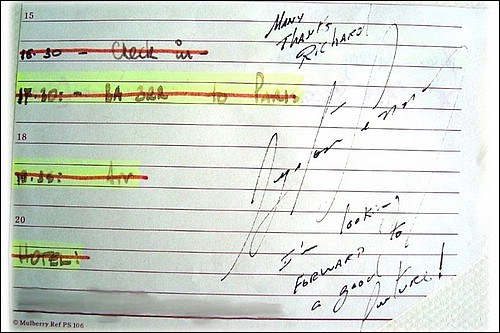 15
Many
Thanks
Richard
16.30 - Check in
17.30: - BA 322 to Paris
18
Arr
20
I'm looking
FORWARD to
a good
future!
HOTEL:
© Mulberry Ref PS 106